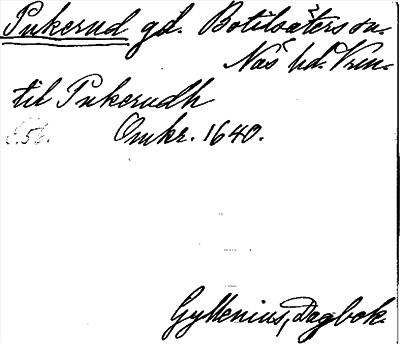 Pukerud gd. Botilsäters sn.
Näs hd. Vrm.
til Pukerudh
s. 56. Omkr. 1640.
Gyllenius, Dagbok.